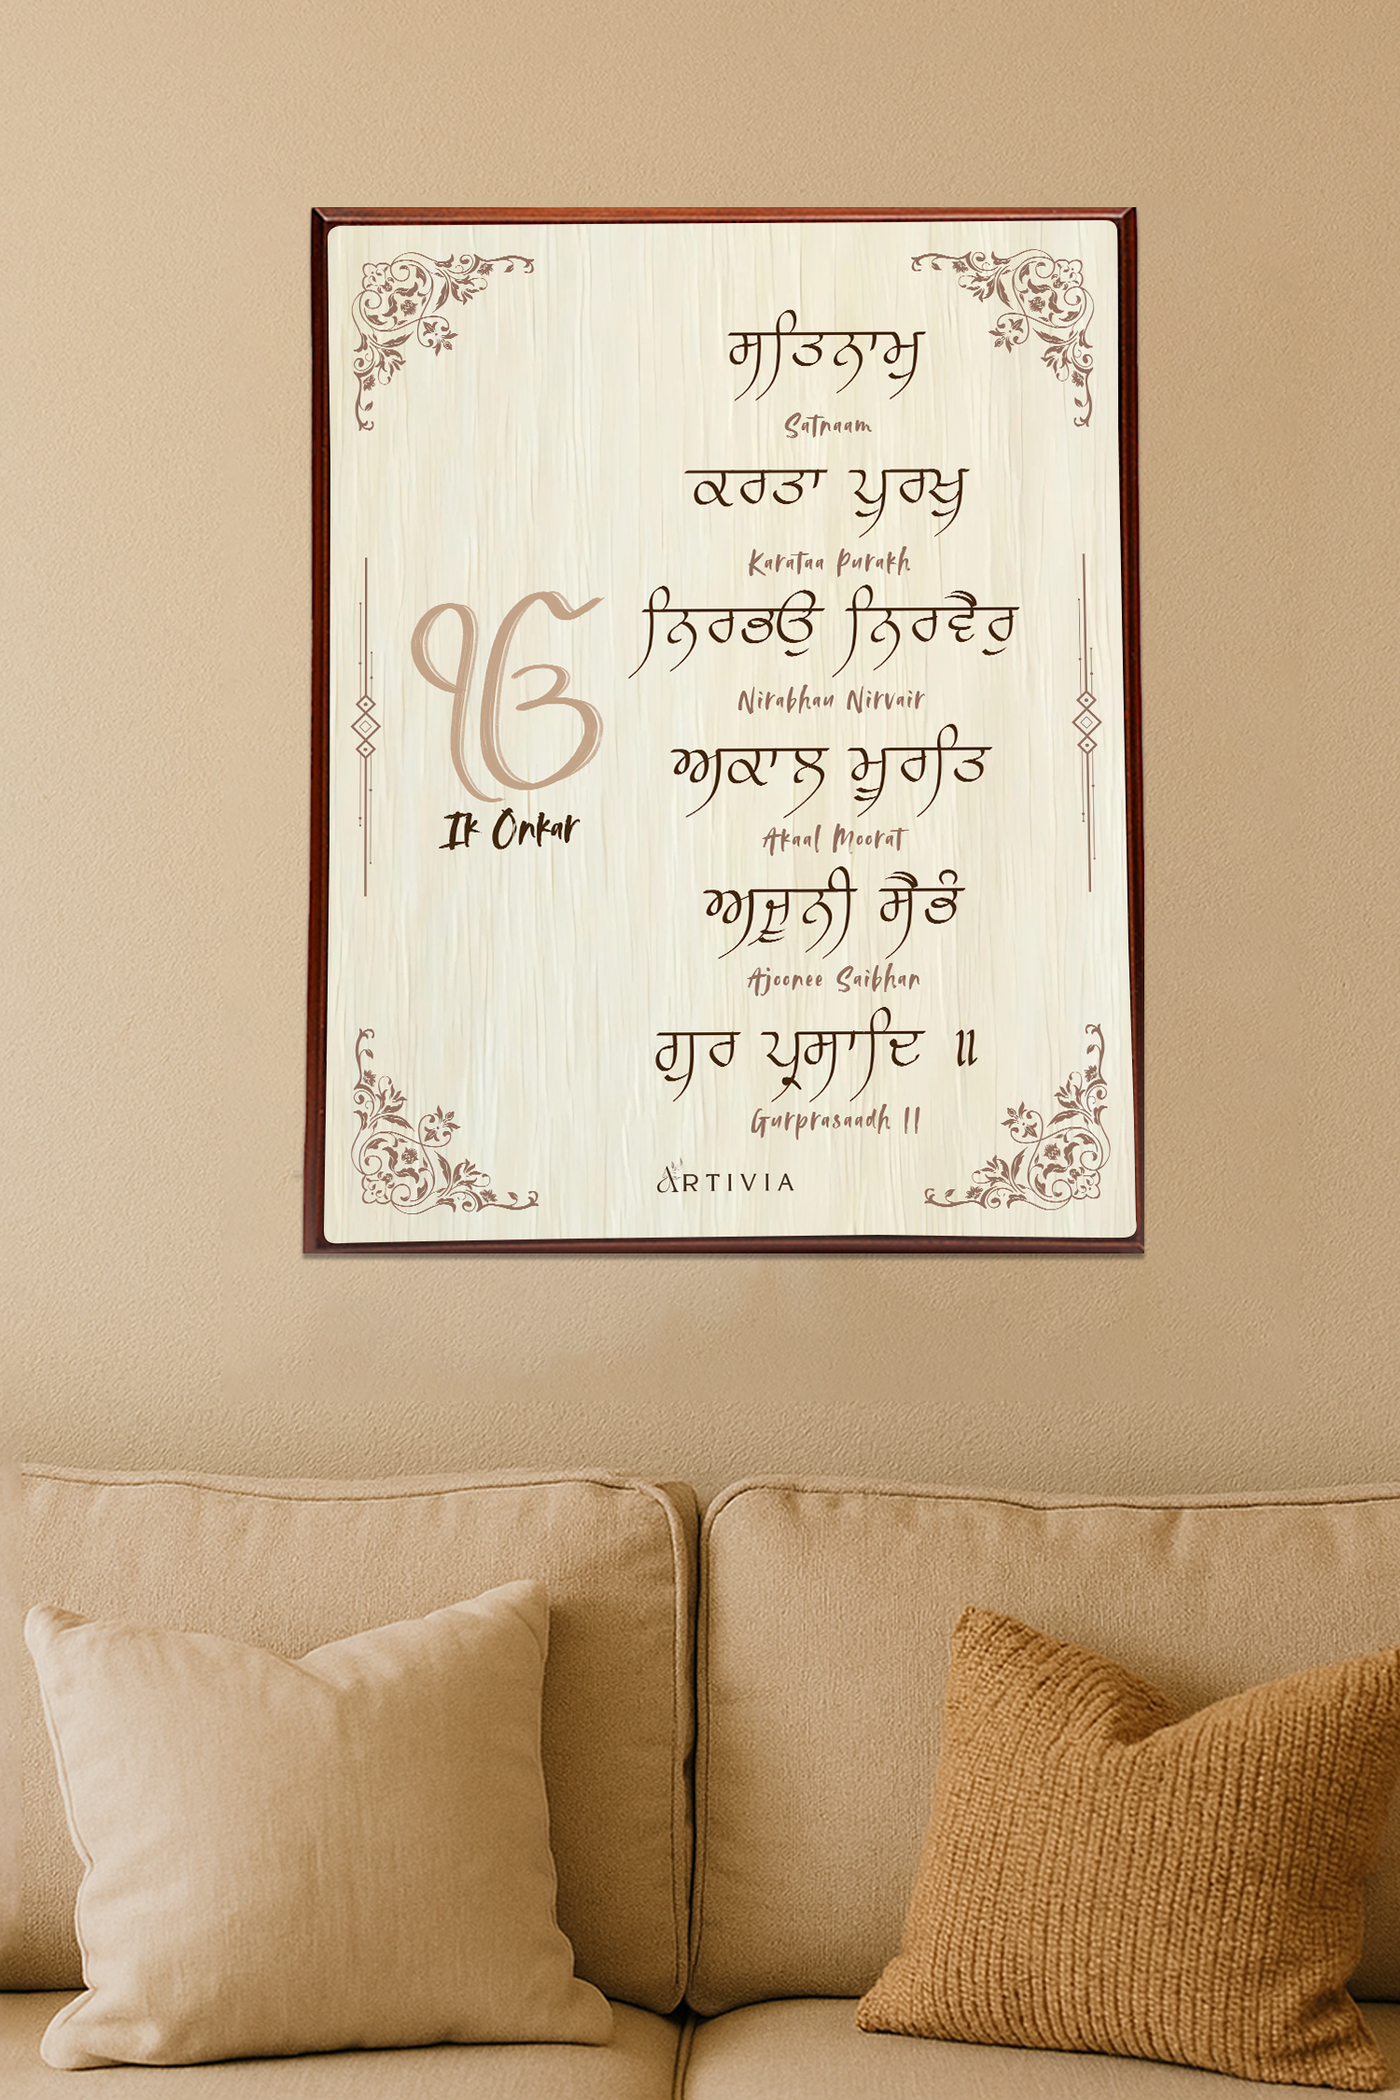 ੴ
Ik Onkar
ਸਤਿਨਾਮੁ
Satnaam
ਕਰਤਾ ਪੁਰਖੁ
Karataa Purakh
ਨਿਰਭਉ ਨਿਰਵੈਰੁ
Nirabhau Nirvair
ਅਕਾਲ ਮੂਰਤਿ
Akaal Moorat
ਅਜੂਨੀ ਸੈਭੰ
Ajoonee Saibhan
ਗੁਰ ਪ੍ਰਸਾਦਿ ॥
Gurprasaadh ||
ARTIVIA